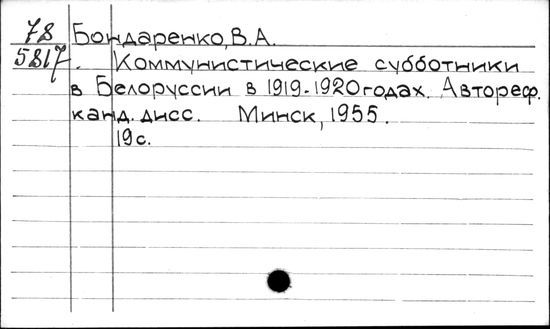 78 Бондаренко, В.А.
5817. Коммунистические субботники
в Белоруссии в 1919-1920 годах. Автореф.
канд. дисс. Минск, 1955.
19с.